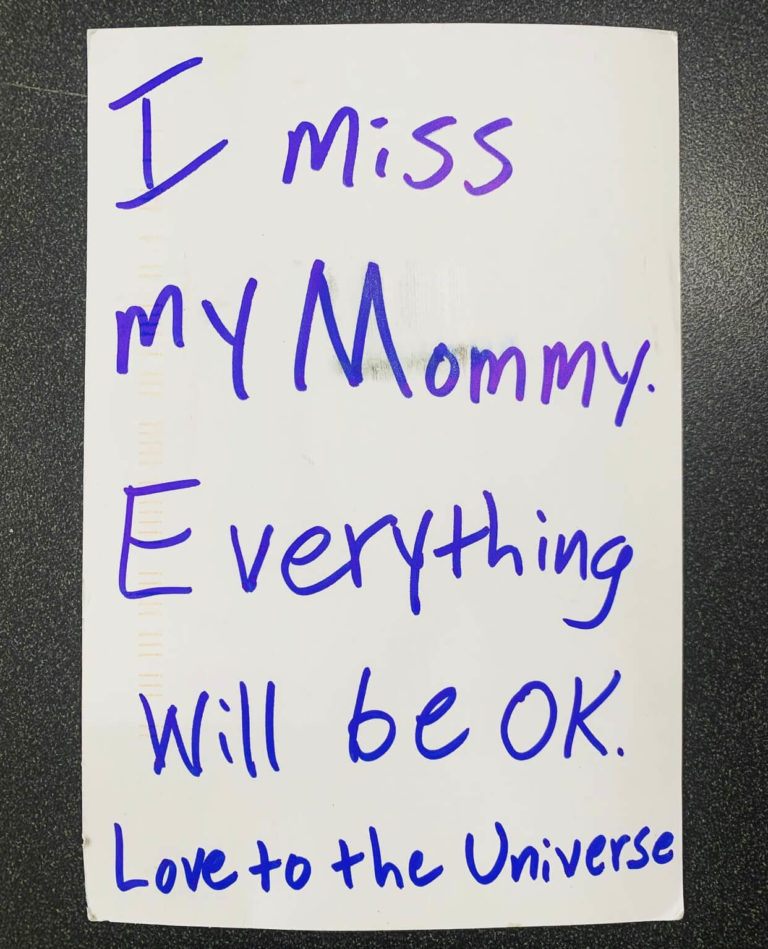 I miss
my Mommy.
Everything
Will be OK.
Love to the Universe